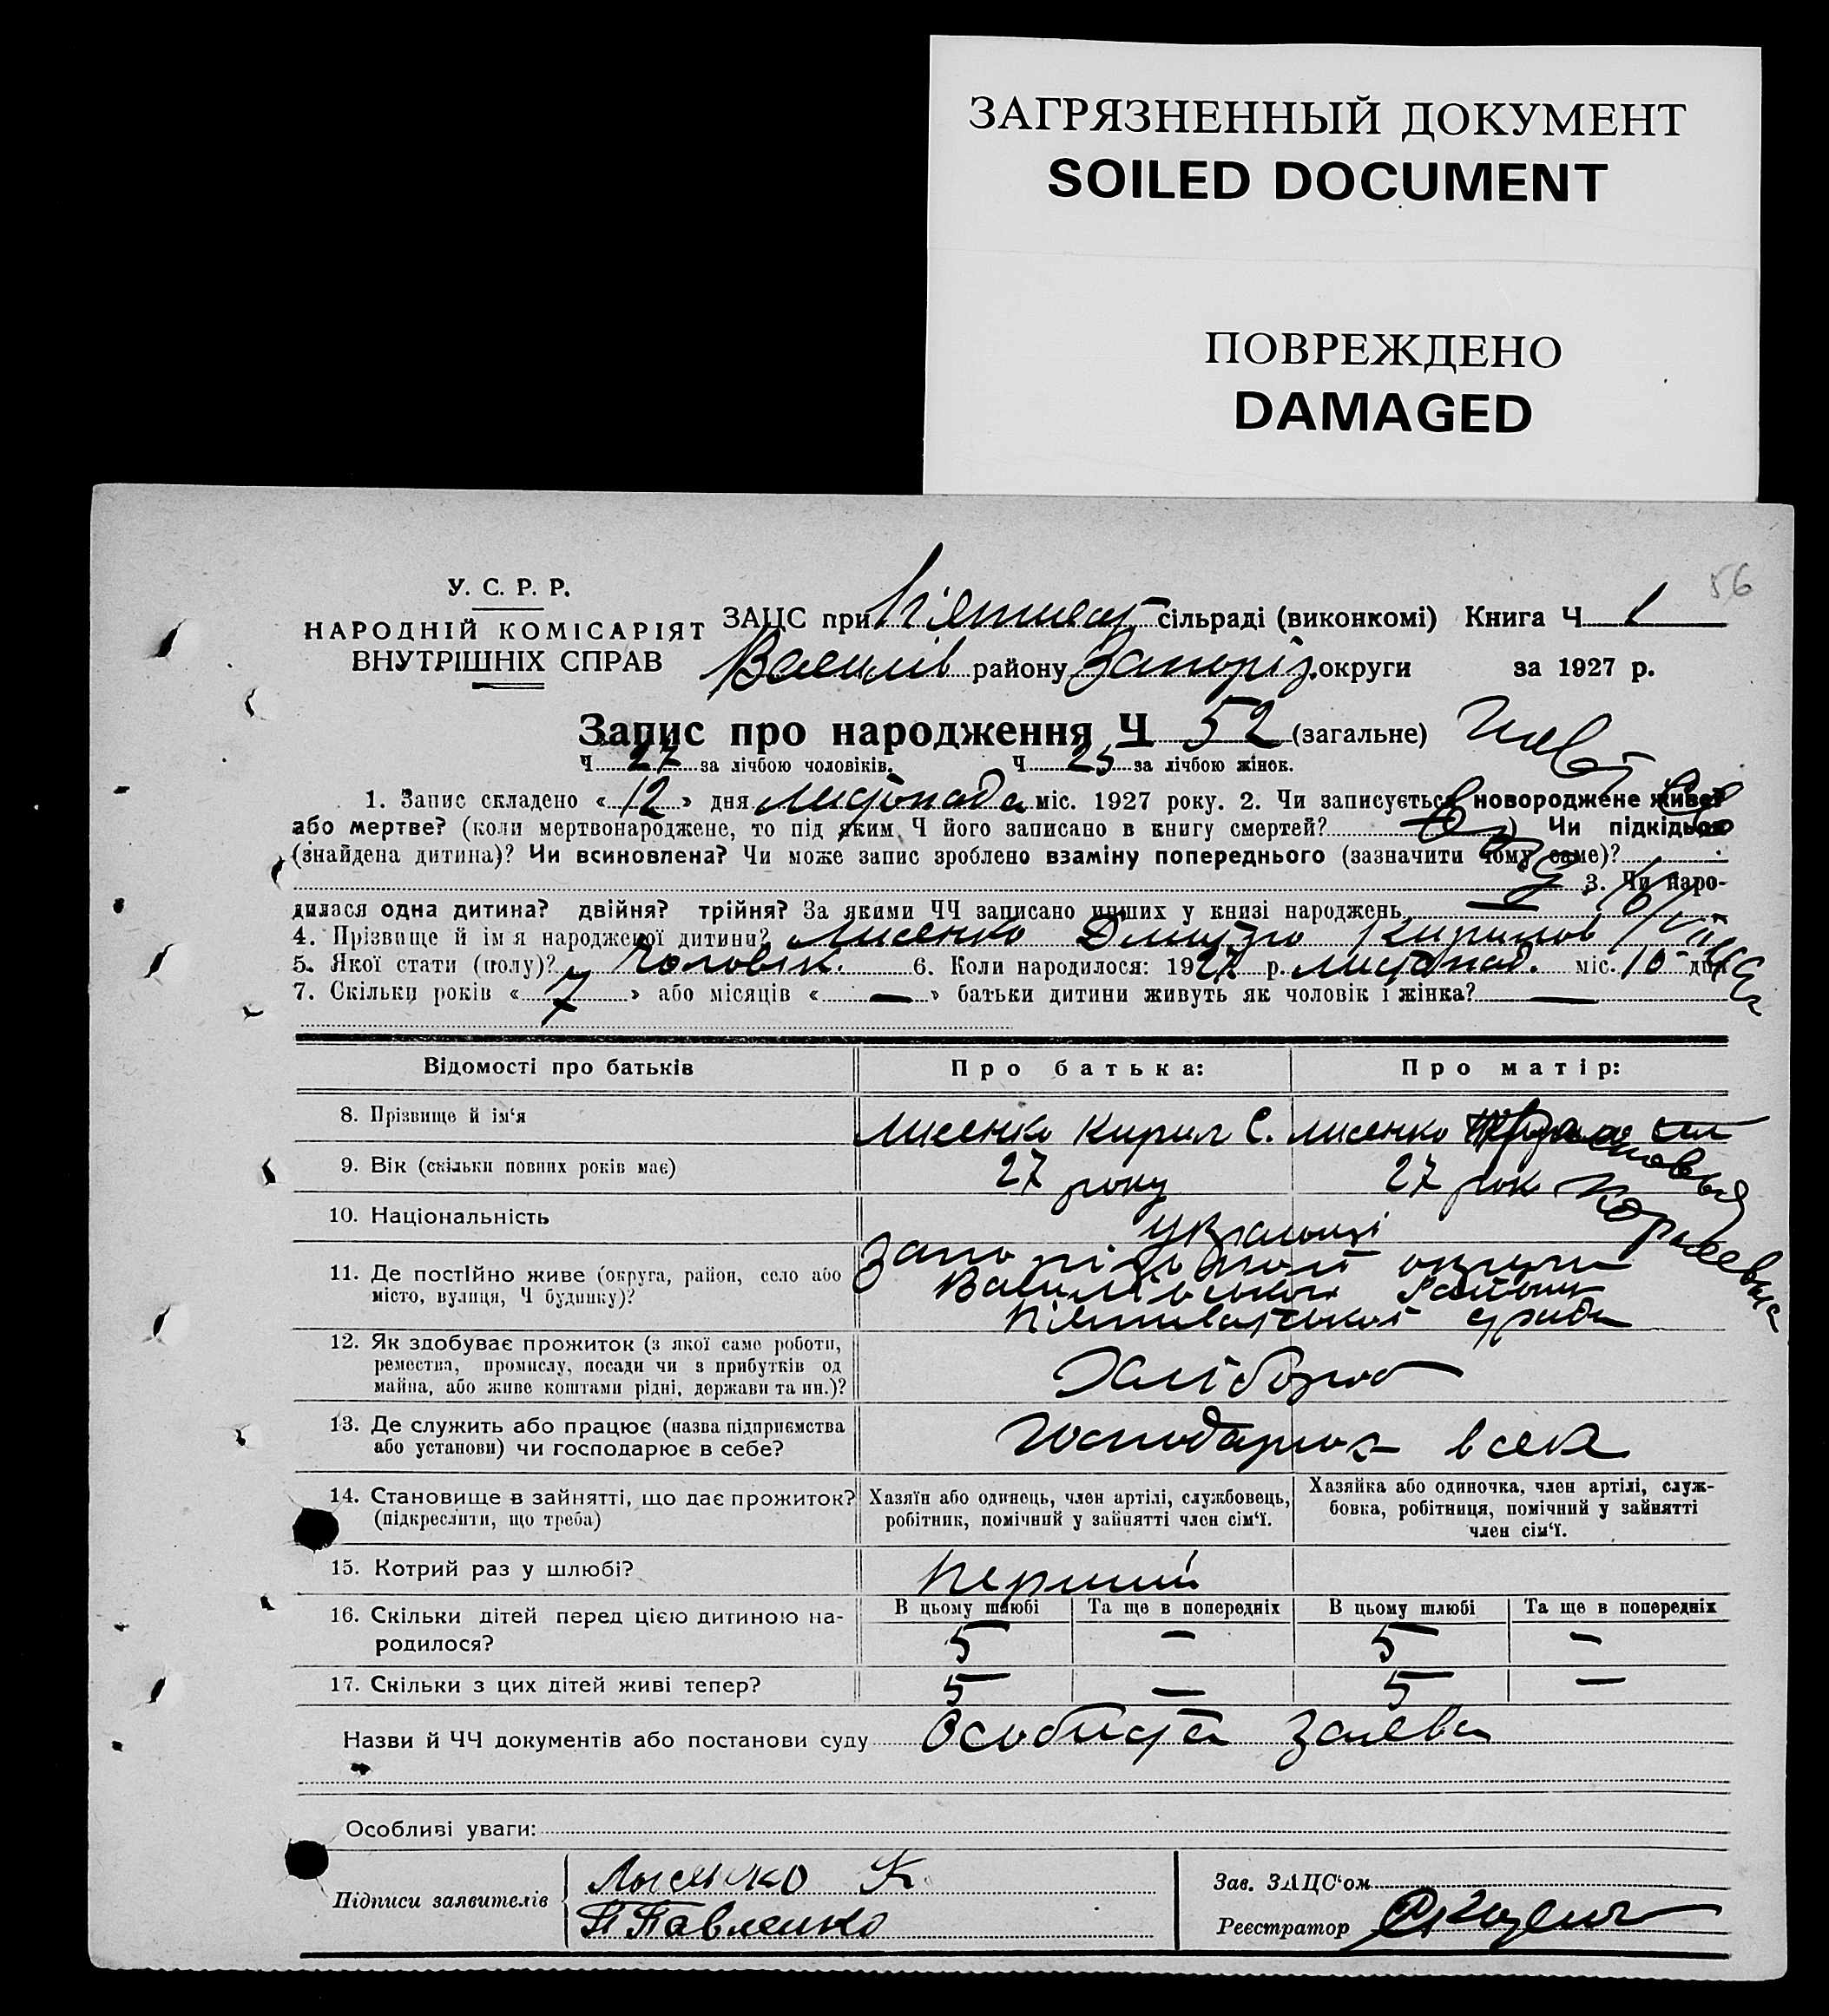 ЗАГРЯЗНЕННЫЙ ДОКУМЕНТ
SOILED DOCUMENT
ПОВРЕЖДЕНО
DAMAGED
56
У. С. Р. Р.
НАРОДНІЙ КОМІСАРІЯТ
ВНУТРІШНІХ СПРАВ
ЗАЦС при сільраді (виконкомі) Книга Ч 1
Василів району Запоріз. округи за 1927 р.
Запис про народження Ч 52 (загальне)
Ч 27 за лічбою чоловіків. Ч 25 за лічбою жінок.
1. Запис складено « 12 » дня Листопада міс. 1927 року. 2. Чи записується новороджене живе?
або мертве? (коли мертвонароджене, то під яким Ч його записано в книгу смертей? ) Чи підкідьок
(знайдена дитина)? Чи всиновлена? Чи може запис зроблено взаміну попереднього (зазначити чому саме)?
3. Чи наро-
дилася одна дитина? двійня? трійня? За якими ЧЧ записано инших у книзі народжень
4. Прізвище й ім'я народженої дитини? Лисенко Дмитро Кирилов
5. Якої стати (полу)? Чоловік. 6. Коли народилося: 1927 р. листопад. міс. 10 дня
7. Скільки років « 7 » або місяців « — » батьки дитини живуть як чоловік і жінка? —
Відомості про батьків Про батька: Про матір:
8. Прізвище й ім‘я Лисенко Кирил С. Лисенко
9. Вік (скільки повних років має) 27 року 27 рок
10. Національність українці
11. Де постійно живе (округа, район, село або місто, вулиця, Ч будинку)? Запорізької округи
Василівського Району
сради
12. Як здобуває прожиток (з якої саме роботи,
ремества, промислу, посади чи з прибутків од
майна, або живе коштами рідні, держави та ин.)? Хлібороб
13. Де служить або працює (назва підприємства
або установи) чи господарює в себе? Господарює в себе
14. Становище в зайнятті, що дає прожиток?
(підкреслити, що треба)
Хазяїн або одинець, член артілі, службовець,
робітник, помічний у зайнятті член сім‘ї.
Хазяйка або одиночка, член артілі, служ-
бовка, робітниця, помічний у зайнятті
член сім‘ї.
15. Котрий раз у шлюбі? перший
16. Скільки дітей перед цією дитиною на-
родилося?
В цьому шлюбі Та ще в попередніх В цьому шлюбі Та ще в попередніх
5 — 5 —
17. Скільки з цих дітей живі тепер? 5 — 5 —
Назви й ЧЧ документів або постанови суду Особиста заява
Особливі уваги:
Підписи заявителів Лысенко К.
П Павленко
Зав. ЗАЦС‘ом
Реєстратор